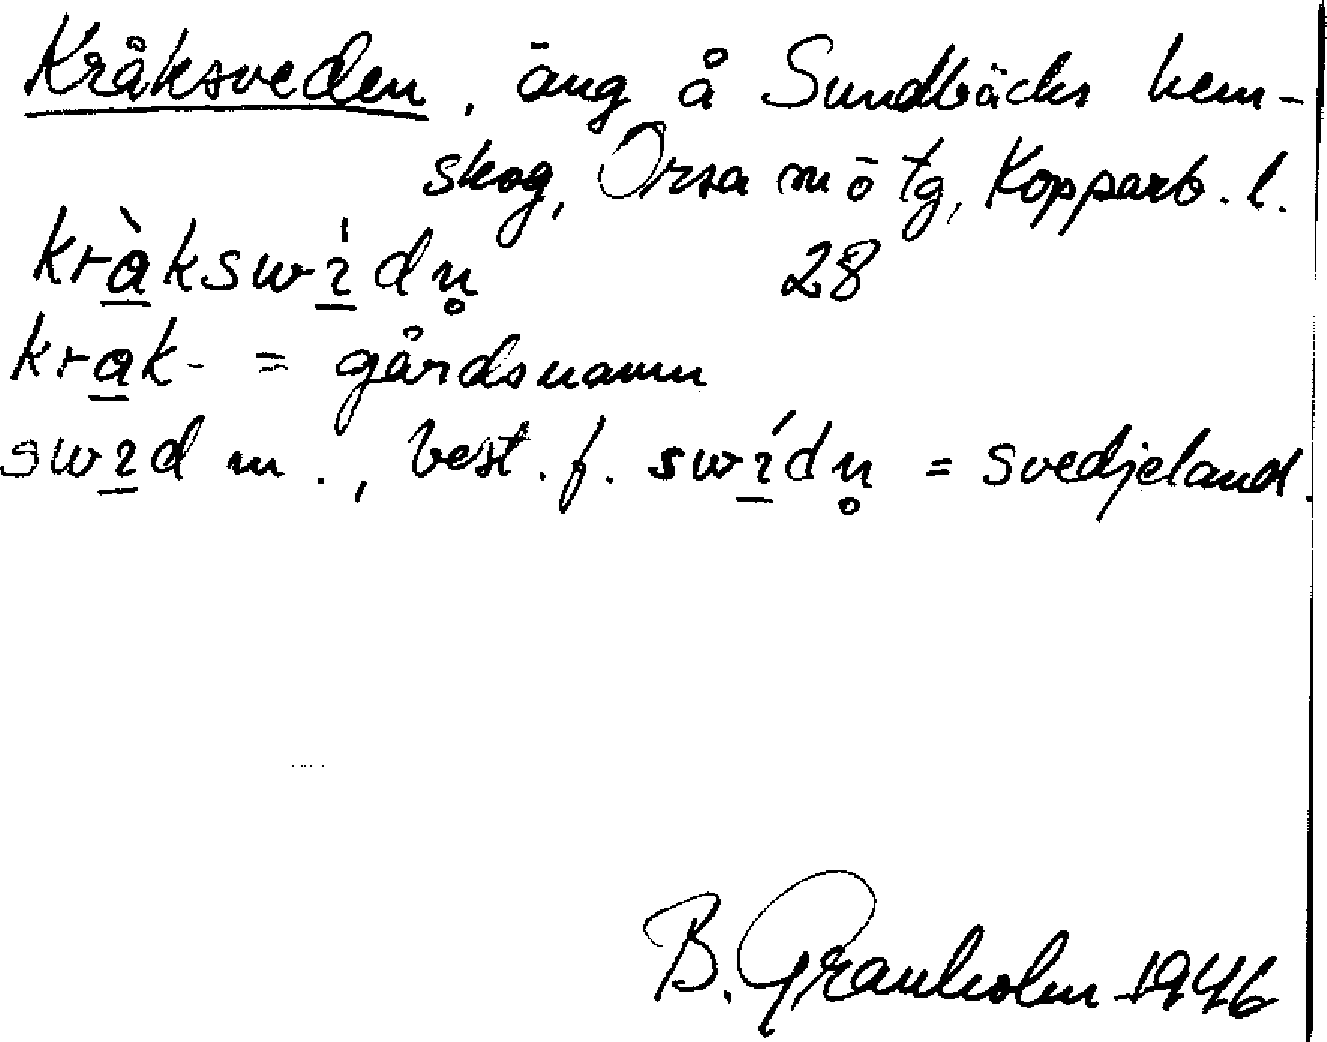 Kråksveden, äng å Sundbäcks hem-
skog, Orsa m ö tg, Kopparb. l.
kràkswídn̥ 28
krak- = gårdsnamn
swid m., best. f. swídn̥ = svedjeland.
B. Granholm 1946